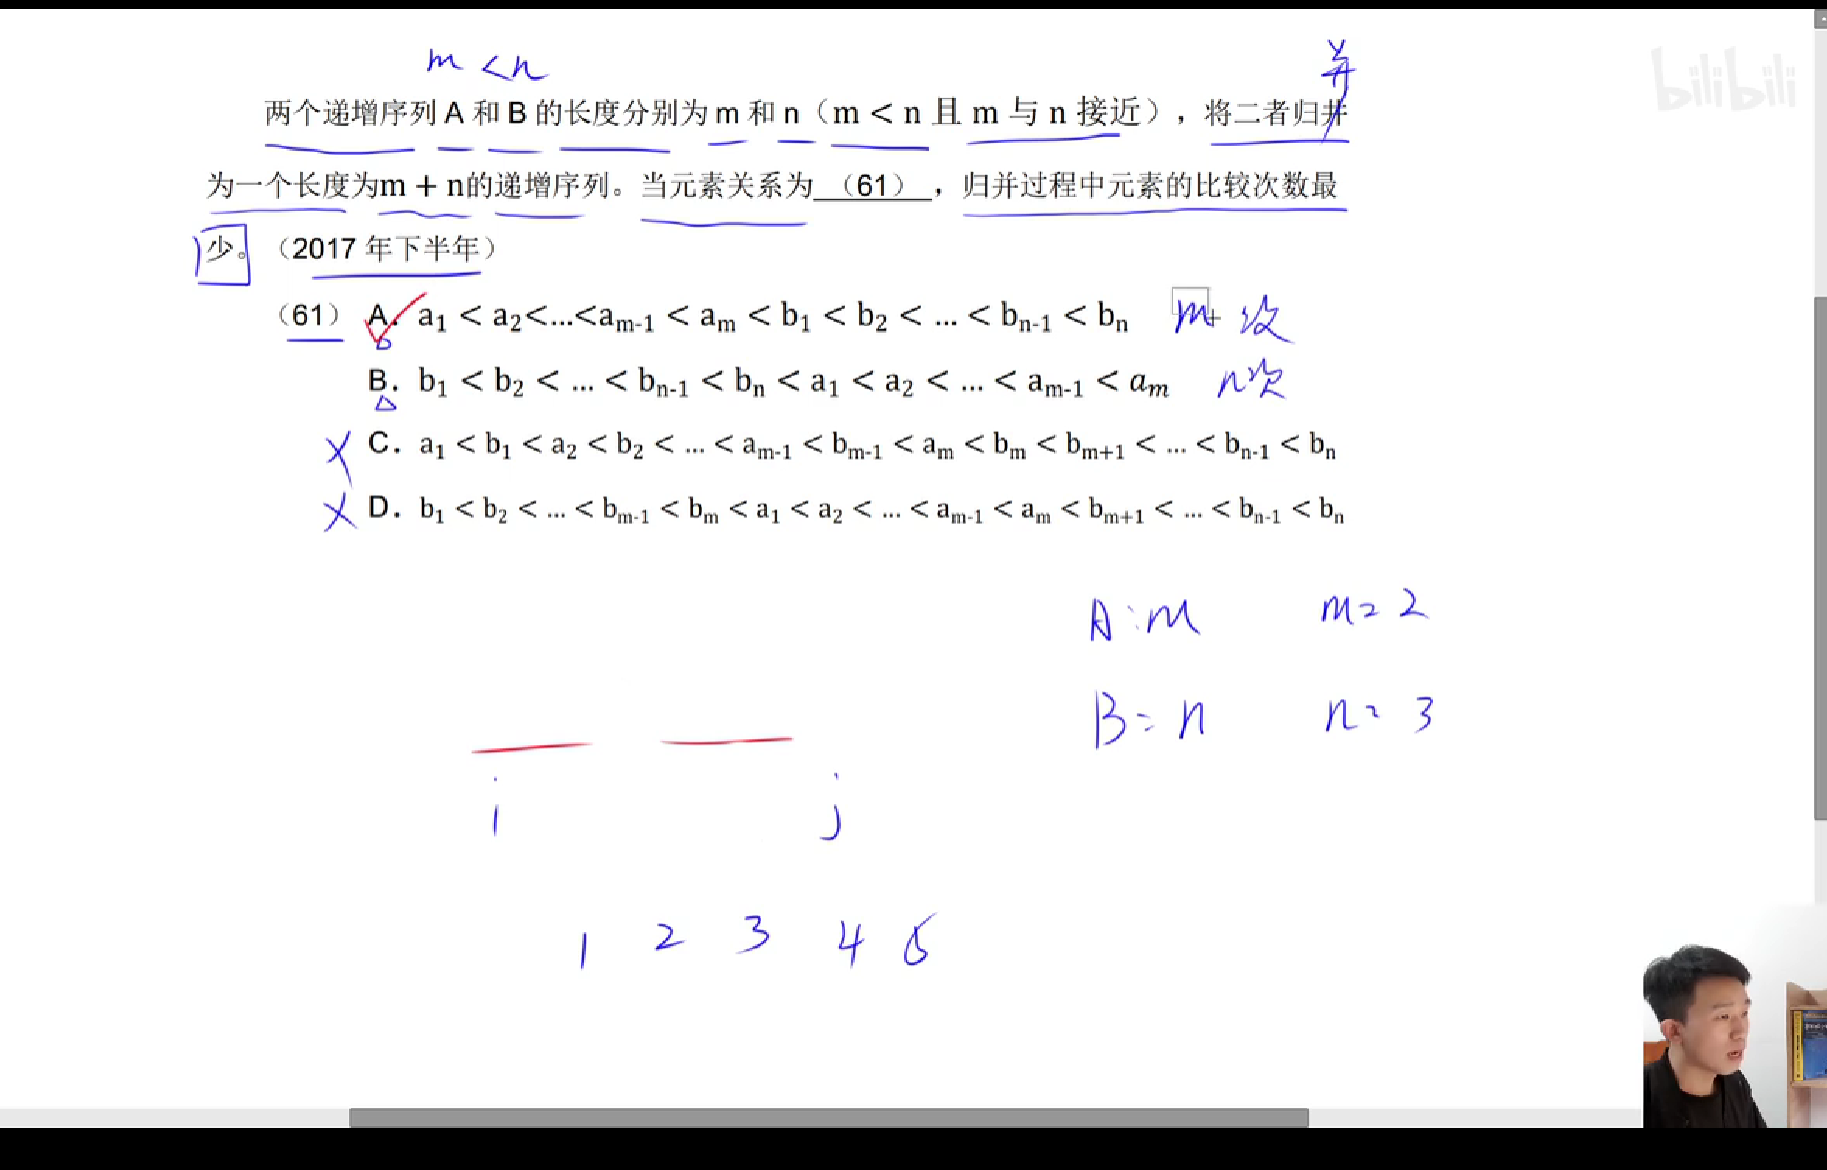 m < n
并
bilibili
两个递增序列 A 和 B 的长度分别为 m 和 n（m < n 且 m 与 n 接近），将二者归并
为一个长度为m + n的递增序列。当元素关系为 （61） ，归并过程中元素的比较次数最
少。（2017 年下半年）
（61） A. a₁ < a₂<...<aₘ₋₁ < aₘ < b₁ < b₂ < ... < bₙ₋₁ < bₙ m 次
B. b₁ < b₂ < ... < bₙ₋₁ < bₙ < a₁ < a₂ < ... < aₘ₋₁ < aₘ n次
X C. a₁ < b₁ < a₂ < b₂ < ... < aₘ₋₁ < bₘ₋₁ < aₘ < bₘ < bₘ₊₁ < ... < bₙ₋₁ < bₙ
X D. b₁ < b₂ < ... < bₘ₋₁ < bₘ < a₁ < a₂ < ... < aₘ₋₁ < aₘ < bₘ₊₁ < ... < bₙ₋₁ < bₙ
A:m m=2
B=n n=3
i j
1 2 3 4 5